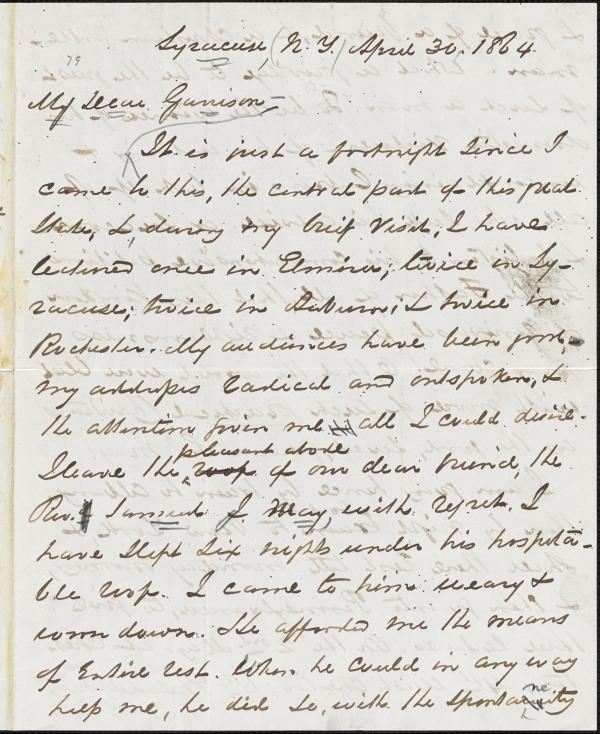 Syracuse, (N. Y.) April 30. 1864
79
My Dear Garrison—
It is just a fortnight since I
came to this, the central part of this great
State, &, during my brief visit, I have
lectured once in Elmira; twice in Sy-
racuse; twice in Auburn; & twice in
Rochester. My audiences have been good,—
my addresses radical and outspoken, &
the attention given me all I could desire.
pleasant abode
I leave the roof of our dear friend, the
Rev. Samuel J. May, with regret. I
have slept six nights under his hospita-
ble roof. I came to him weary &
worn down. He afforded me the means
of entire rest. When he could in any way
ne
help me, he did so, with the spontanuity